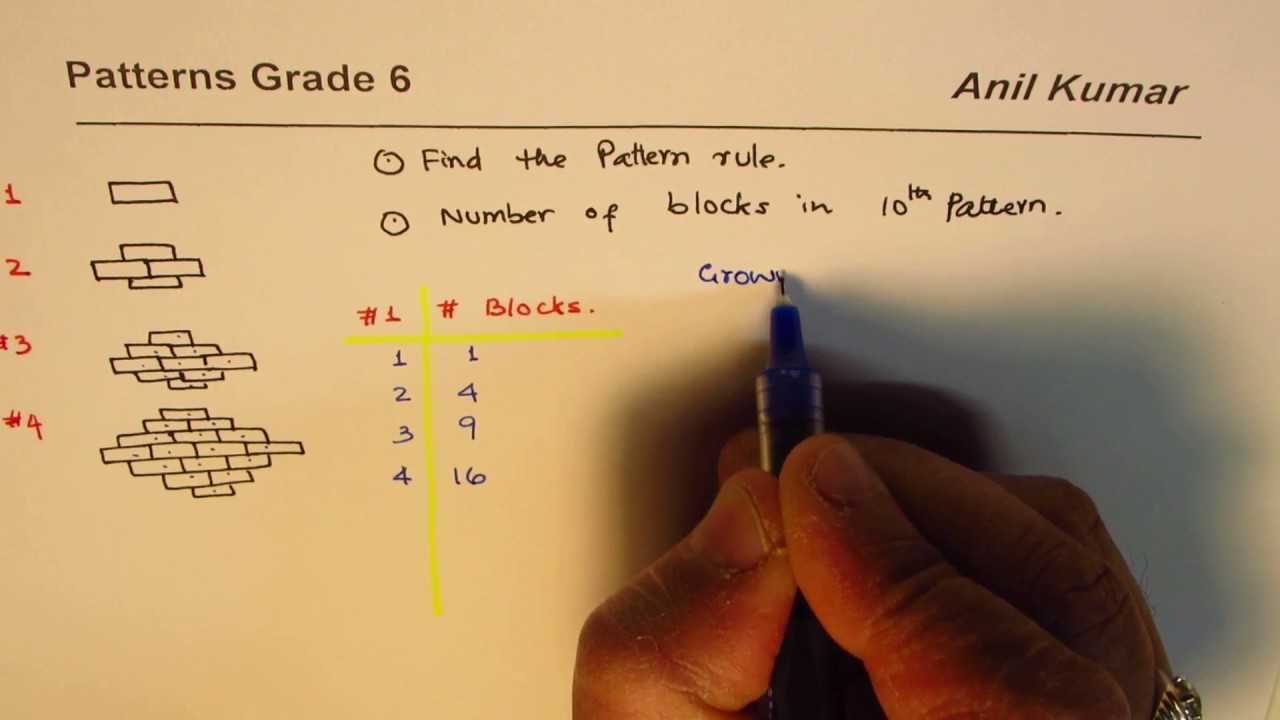 Patterns Grade 6
Anil Kumar
Find the Pattern rule.
Number of blocks in 10th Pattern.
1
2
#3
#4
Grow
#1 # Blocks.
1 1
2 4
3 9
4 16